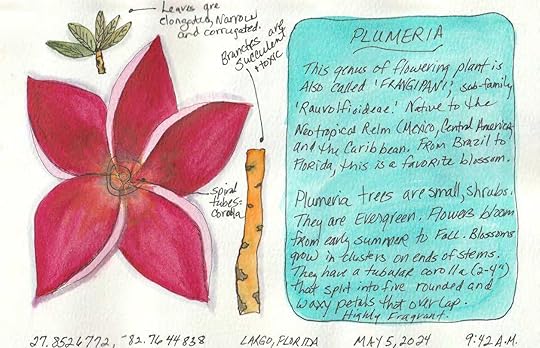 Leaves are
elongated, Narrow
and corrugated.
Branches are
succulent
+ toxic
spiral
tubes=
corolla
PLUMERIA
This genus of flowering plant is
Also called 'FRANGIPANI', sub-family
'Rauvolfioideae.' Native to the
Neotropical Relm (Mexico, Central America
and the Caribbean. From Brazil to
Florida, this is a favorite blossom.
Plumeria trees are small, shrubs.
They are Evergreen. Flowers bloom
from early summer to Fall. Blossoms
grow in clusters on ends of stems.
They have a tubular corolla (2-4")
that split into five rounded and
waxy petals that overlap.
Highly Fragrant.
27.8526772, -82.7644838 LARGO, FLORIDA MAY 5, 2024 9:42 A.M.